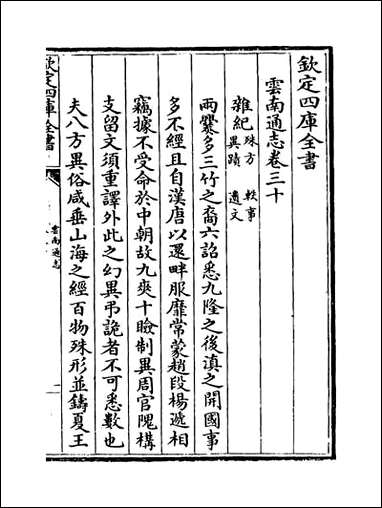 欽定四庫全書
雲南通志卷三十
雜紀 殊方 軼事
異蹟 遺文
兩爨多三竹之裔六詔悉九隆之後滇之開國事
多不經且自漢唐以還畔服靡常蒙趙段楊遞相
竊據不受命於中朝故九爽十瞼制異周官隗構
支留文須重譯外此之幻異弔詭者不可悉數也
夫八方異俗咸垂山海之經百物殊形並鑄夏王
欽定四庫全書
雲南通志
一